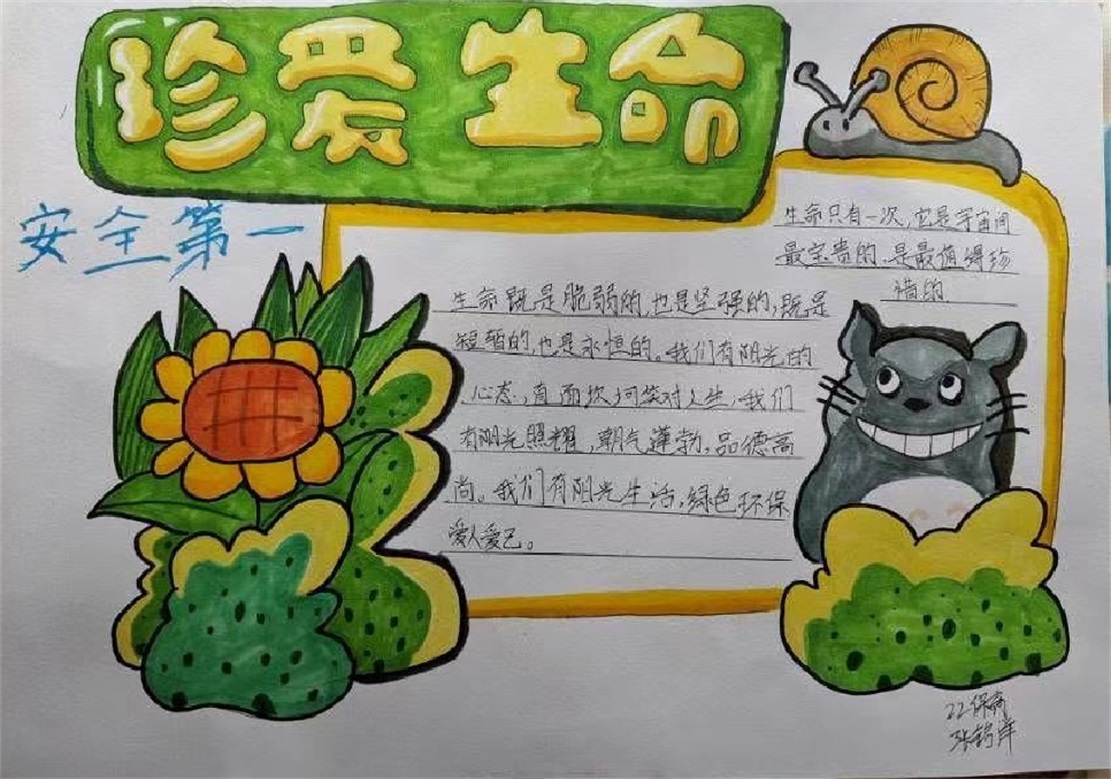 珍爱生命
安全第一
生命只有一次,它是宇宙间
最宝贵的、是最值得珍
惜的
生命既是脆弱的,也是坚强的,既是
短暂的,也是永恒的。我们有阳光的
心态,直面坎坷笑对人生,我们
有阳光照耀,朝气蓬勃,品德高
尚。我们有阳光生活,绿色环保
爱人爱己。
22保商